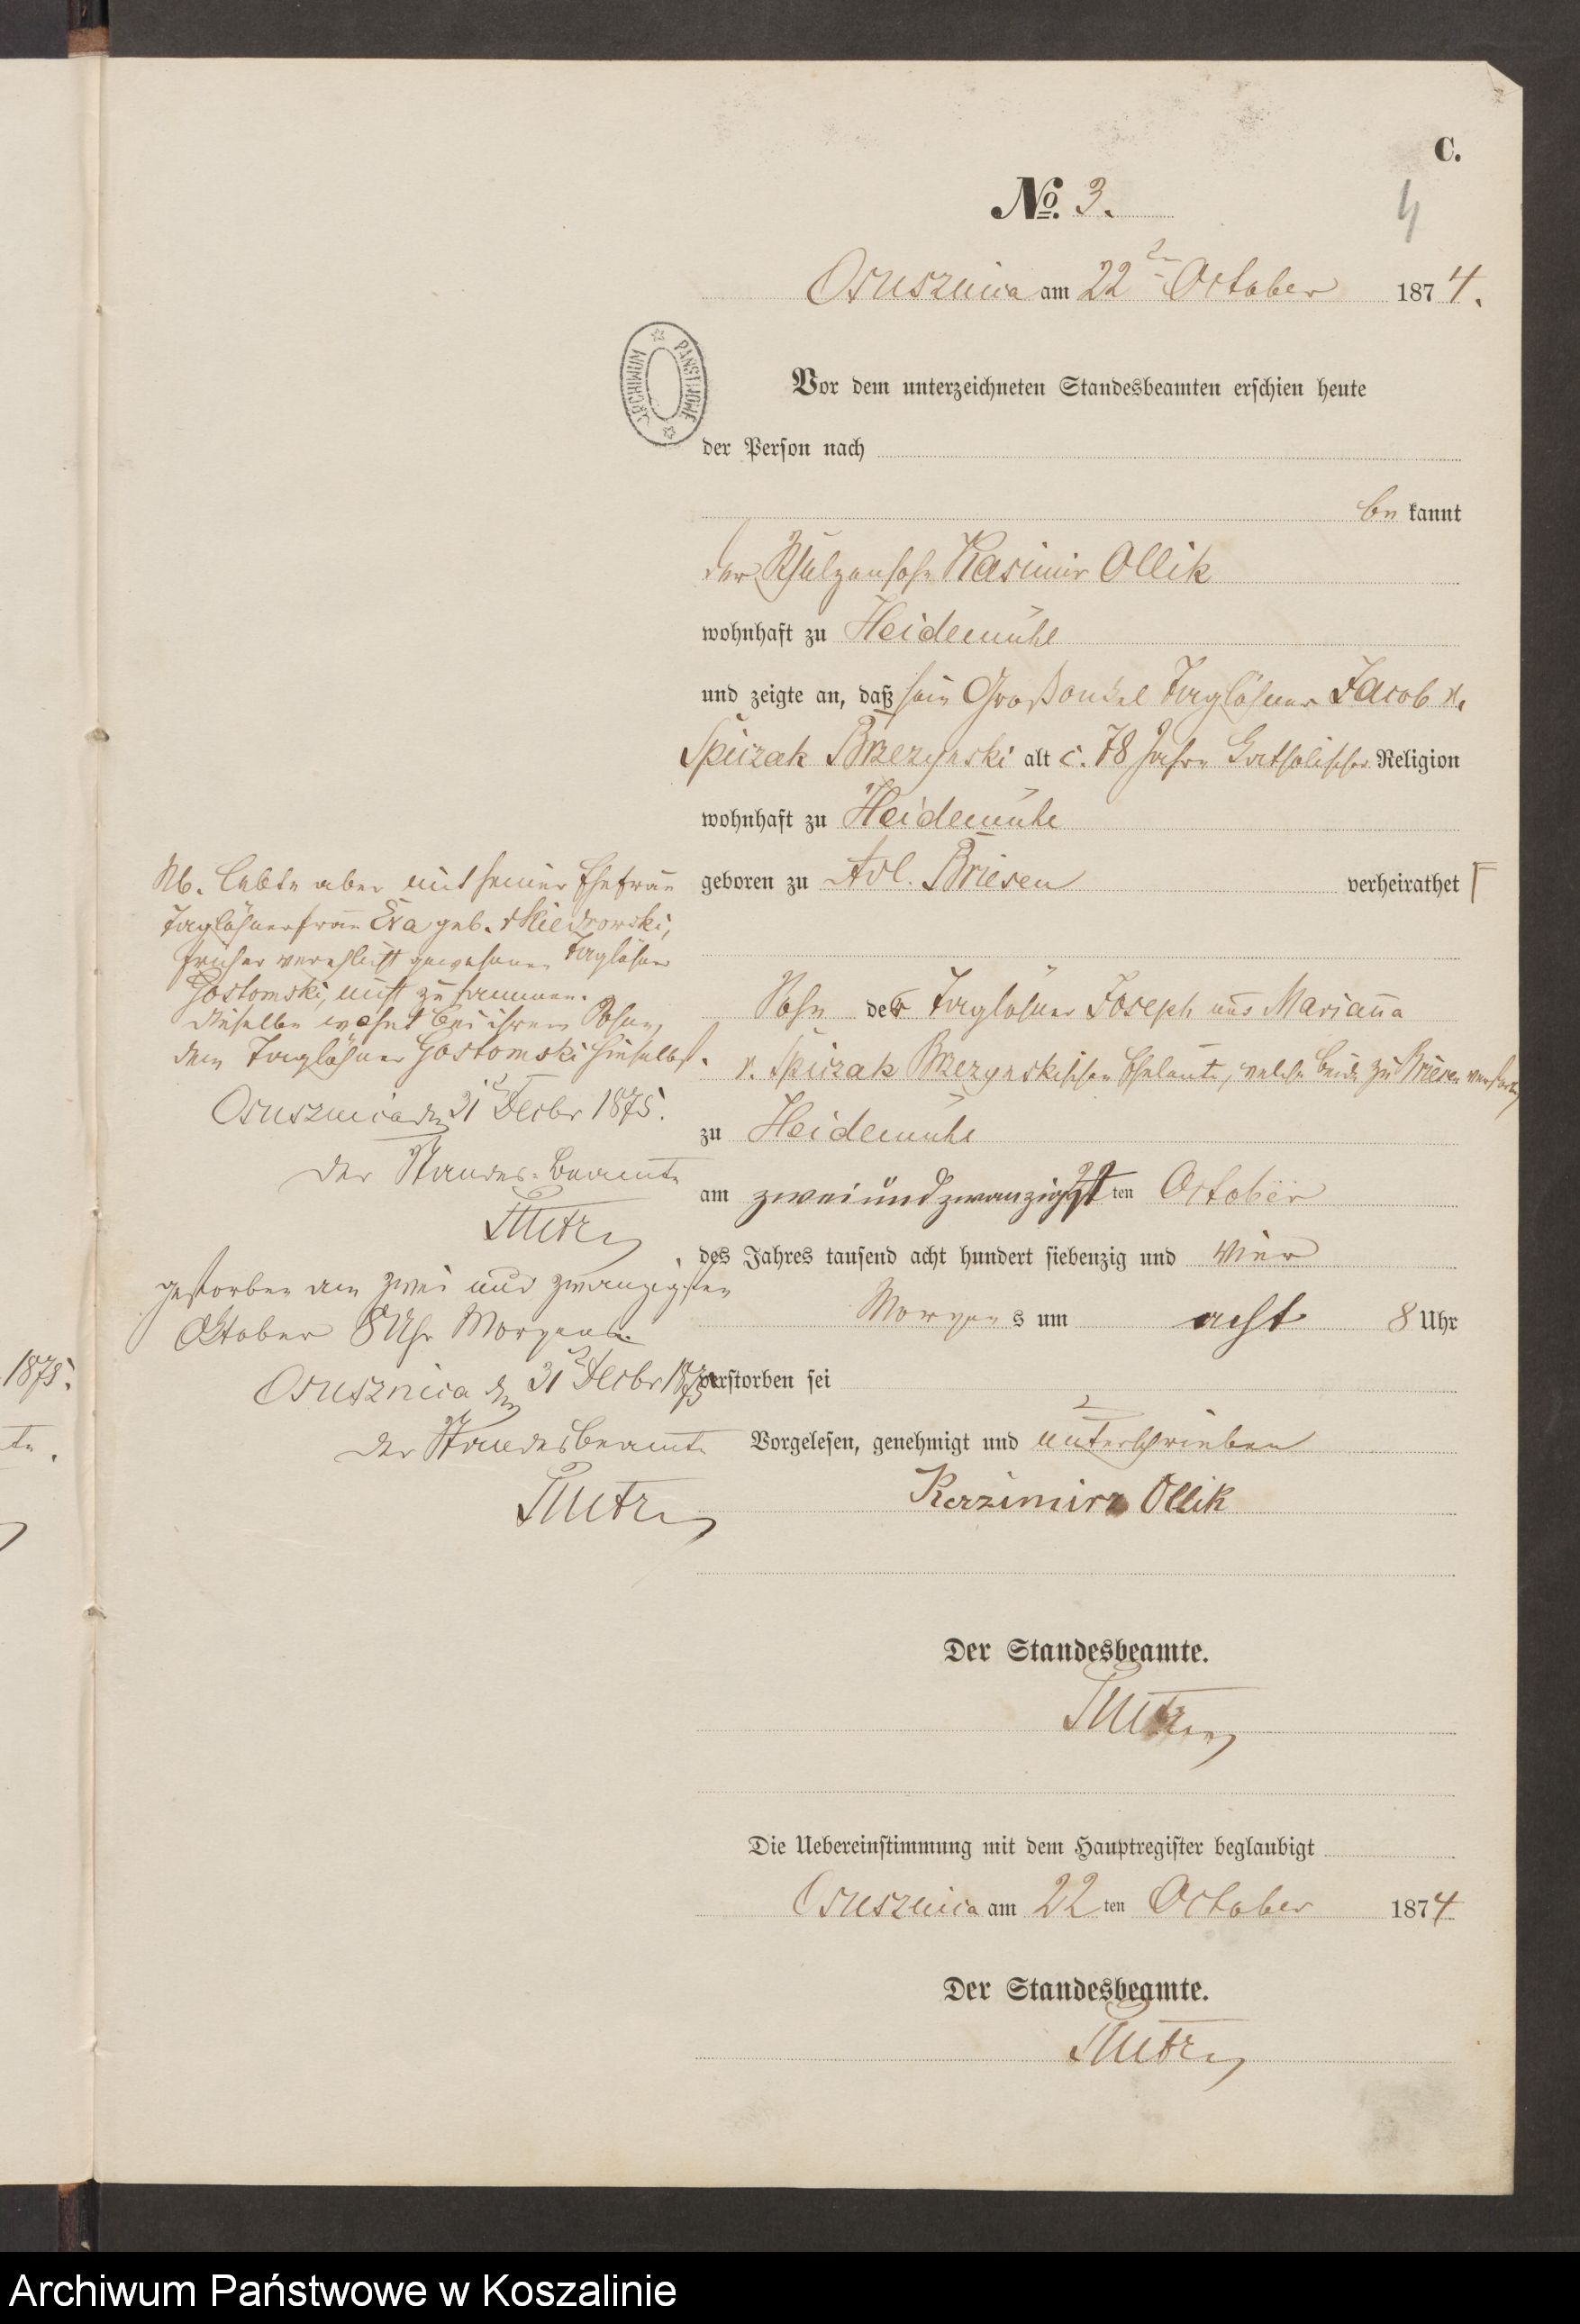 C.
No. 3.
4
Osusznica am 22ten October 1874.
ARCHIWUM PAŃSTWOWE
Vor dem unterzeichneten Standesbeamten erschien heute
der Person nach
be kannt
der Schulzensohn Kasimir Ollik
wohnhaft zu Heidemühl
und zeigte an, daß sein Großonkel Tagelöhner Jacob v.
Spiczak Brzezynski alt c. 78 Jahre katholischer Religion
wohnhaft zu Heidemühl
geboren zu Adl. Briesen verheirathet
Sohn der Taglöhner Joseph und Marianna
v. Spiczak Brzezynskischen Eheleute, welche beide zu Briesen verstorben
zu Heidemühl
am zweiundzwanzigst ten October
des Jahres tausend acht hundert siebenzig und vier
Morgen s um acht 8 Uhr
verstorben sei
Vorgelesen, genehmigt und unterschrieben
Kazimirz Ollik
Der Standesbeamte.
Die Uebereinstimmung mit dem Hauptregister beglaubigt
Osusznica am 22 ten October 1874
Der Standesbeamte.
Nb. Lebte aber mit seiner Ehefrau
Taglöhnerfrau Eva geb.
früher verehlicht gewesenen Taglöhner
Gostomski, nicht zusammen.
Dieselbe wohnt bei ihrem Sohne,
dem Taglöhner Gostomski hieselbst.
Osusznica den 31 Decbr 1875.
Der Standes-Beamte
gestorben am zwei und zwanzigsten
Oktober 8 Uhr Morgens.
Osusznica den 31 Decbr 1875
Der Standesbeamte
1875.
te.
Archiwum Państwowe w Koszalinie